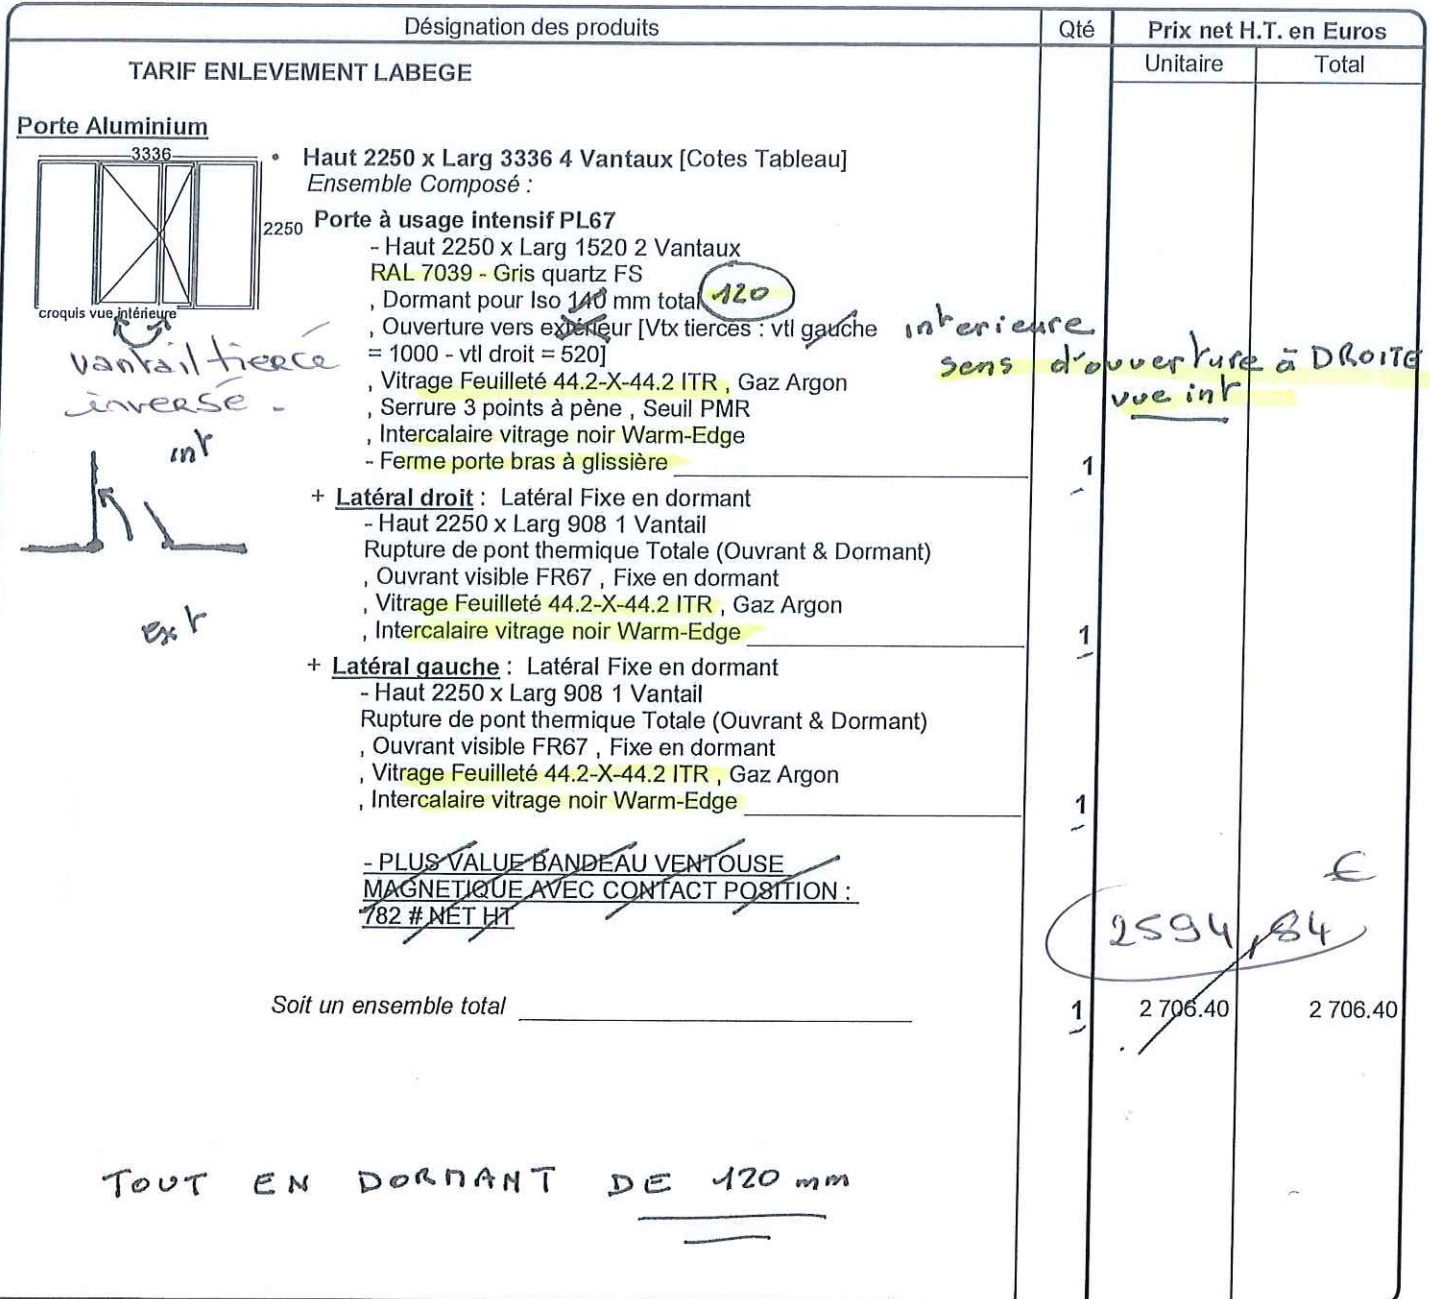 Désignation des produits Qté Prix net H.T. en Euros
TARIF ENLEVEMENT LABEGE Unitaire Total
Porte Aluminium
3336
2250
croquis vue intérieure
vantail tiercé
inversé -
int
ext
• Haut 2250 x Larg 3336 4 Vantaux [Cotes Tableau]
Ensemble Composé :
Porte à usage intensif PL67
- Haut 2250 x Larg 1520 2 Vantaux
RAL 7039 - Gris quartz FS
, Dormant pour Iso 140 mm total 120
, Ouverture vers extérieur [Vtx tiercés : vtl gauche interieure
= 1000 - vtl droit = 520] sens d'ouverture à DROITE
vue int
, Vitrage Feuilleté 44.2-X-44.2 ITR , Gaz Argon
, Serrure 3 points à pène , Seuil PMR
, Intercalaire vitrage noir Warm-Edge
- Ferme porte bras à glissière 1
+ Latéral droit : Latéral Fixe en dormant
- Haut 2250 x Larg 908 1 Vantail
Rupture de pont thermique Totale (Ouvrant & Dormant)
, Ouvrant visible FR67 , Fixe en dormant
, Vitrage Feuilleté 44.2-X-44.2 ITR , Gaz Argon
, Intercalaire vitrage noir Warm-Edge 1
+ Latéral gauche : Latéral Fixe en dormant
- Haut 2250 x Larg 908 1 Vantail
Rupture de pont thermique Totale (Ouvrant & Dormant)
, Ouvrant visible FR67 , Fixe en dormant
, Vitrage Feuilleté 44.2-X-44.2 ITR , Gaz Argon
, Intercalaire vitrage noir Warm-Edge 1
- PLUS VALUE BANDEAU VENTOUSE
MAGNETIQUE AVEC CONTACT POSITION :
782 # NET HT
€
2594,84
Soit un ensemble total 1 2 706.40 2 706.40
TOUT EN DORMANT DE 120 mm